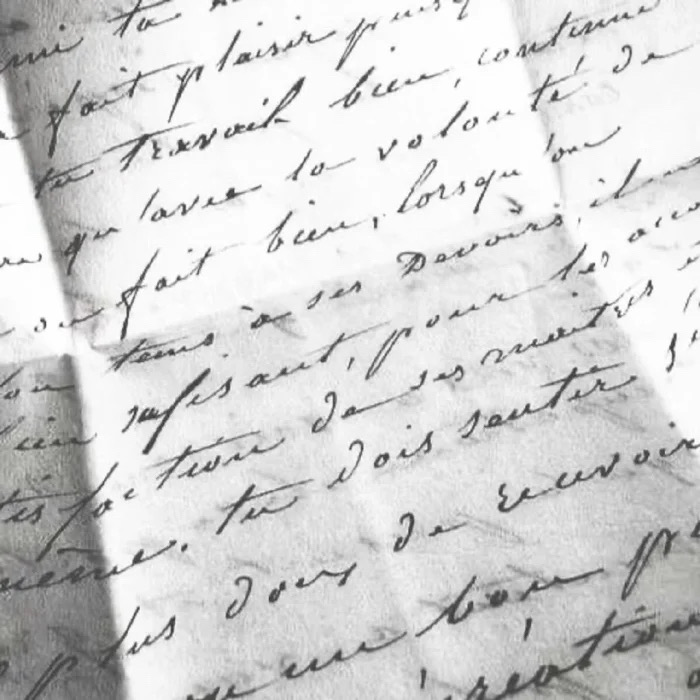 ta
fait plaisir puisq
tu travail bien, continue
qu'avec la volonté de
on fait bien, lorsqu'on
tems à ses Devoirs, il
bien sufisant, pour les acco
tisfaction de ses maitres
même. tu dois sentir
plus doux de recevoir
ou un bon
récréation